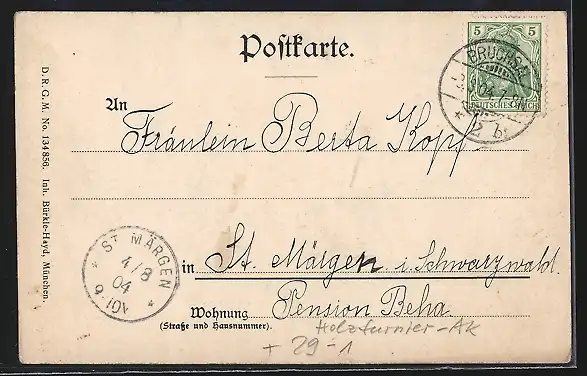 Postkarte.
5 5
BRUCHSAL
04
DEUTSCHES REICH
2 b
An
Fräulein Berta Kopf
D.R.G.M. No. 134856. Inh. Bürkle-Hayd, München.
ST MÄRGEN
4/8
04
9-10V
in St. Märgen i. Schwarzwald.
Wohnung Pension Beha.
(Straße und Hausnummer).
Holzfurnier-AK
+ 29-1